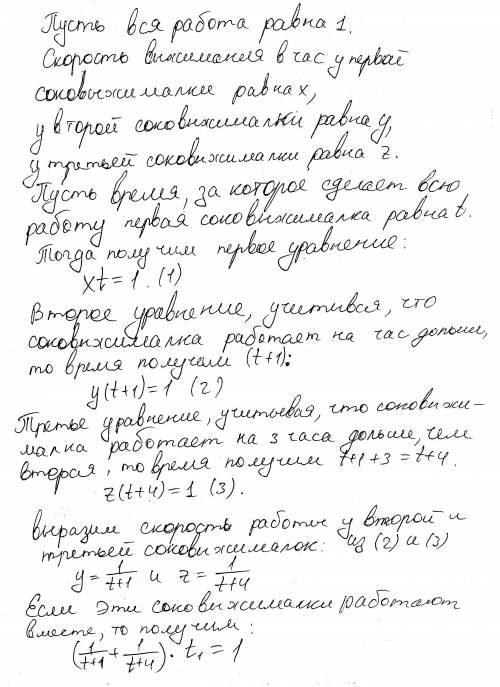 Пусть вся работа равна 1.
Скорость выжимания в час у первой
соковыжималки равна x,
у второй соковыжималки равна y,
у третьей соковыжималки равна z.
Пусть время, за которое сделает всю
работу первая соковыжималка равна t.
Тогда получим первое уравнение:
xt = 1. (1)
Второе уравнение, учитывая, что
соковыжималка работает на час дольше,
то время получим (t+1):
y(t+1)=1 (2)
Третье уравнение, учитывая, что соковыжи-
малка работает на 3 часа дольше, чем
вторая, то время получим t+1+3=t+4.
z(t+4)=1 (3).
Выразим скорость работы у второй и
третьей соковыжималок: из (2) и (3)
y = 1/(t+1) и z = 1/(t+4)
Если эти соковыжималки работают
вместе, то получим:
(1/(t+1) + 1/(t+4)) · t₁ = 1